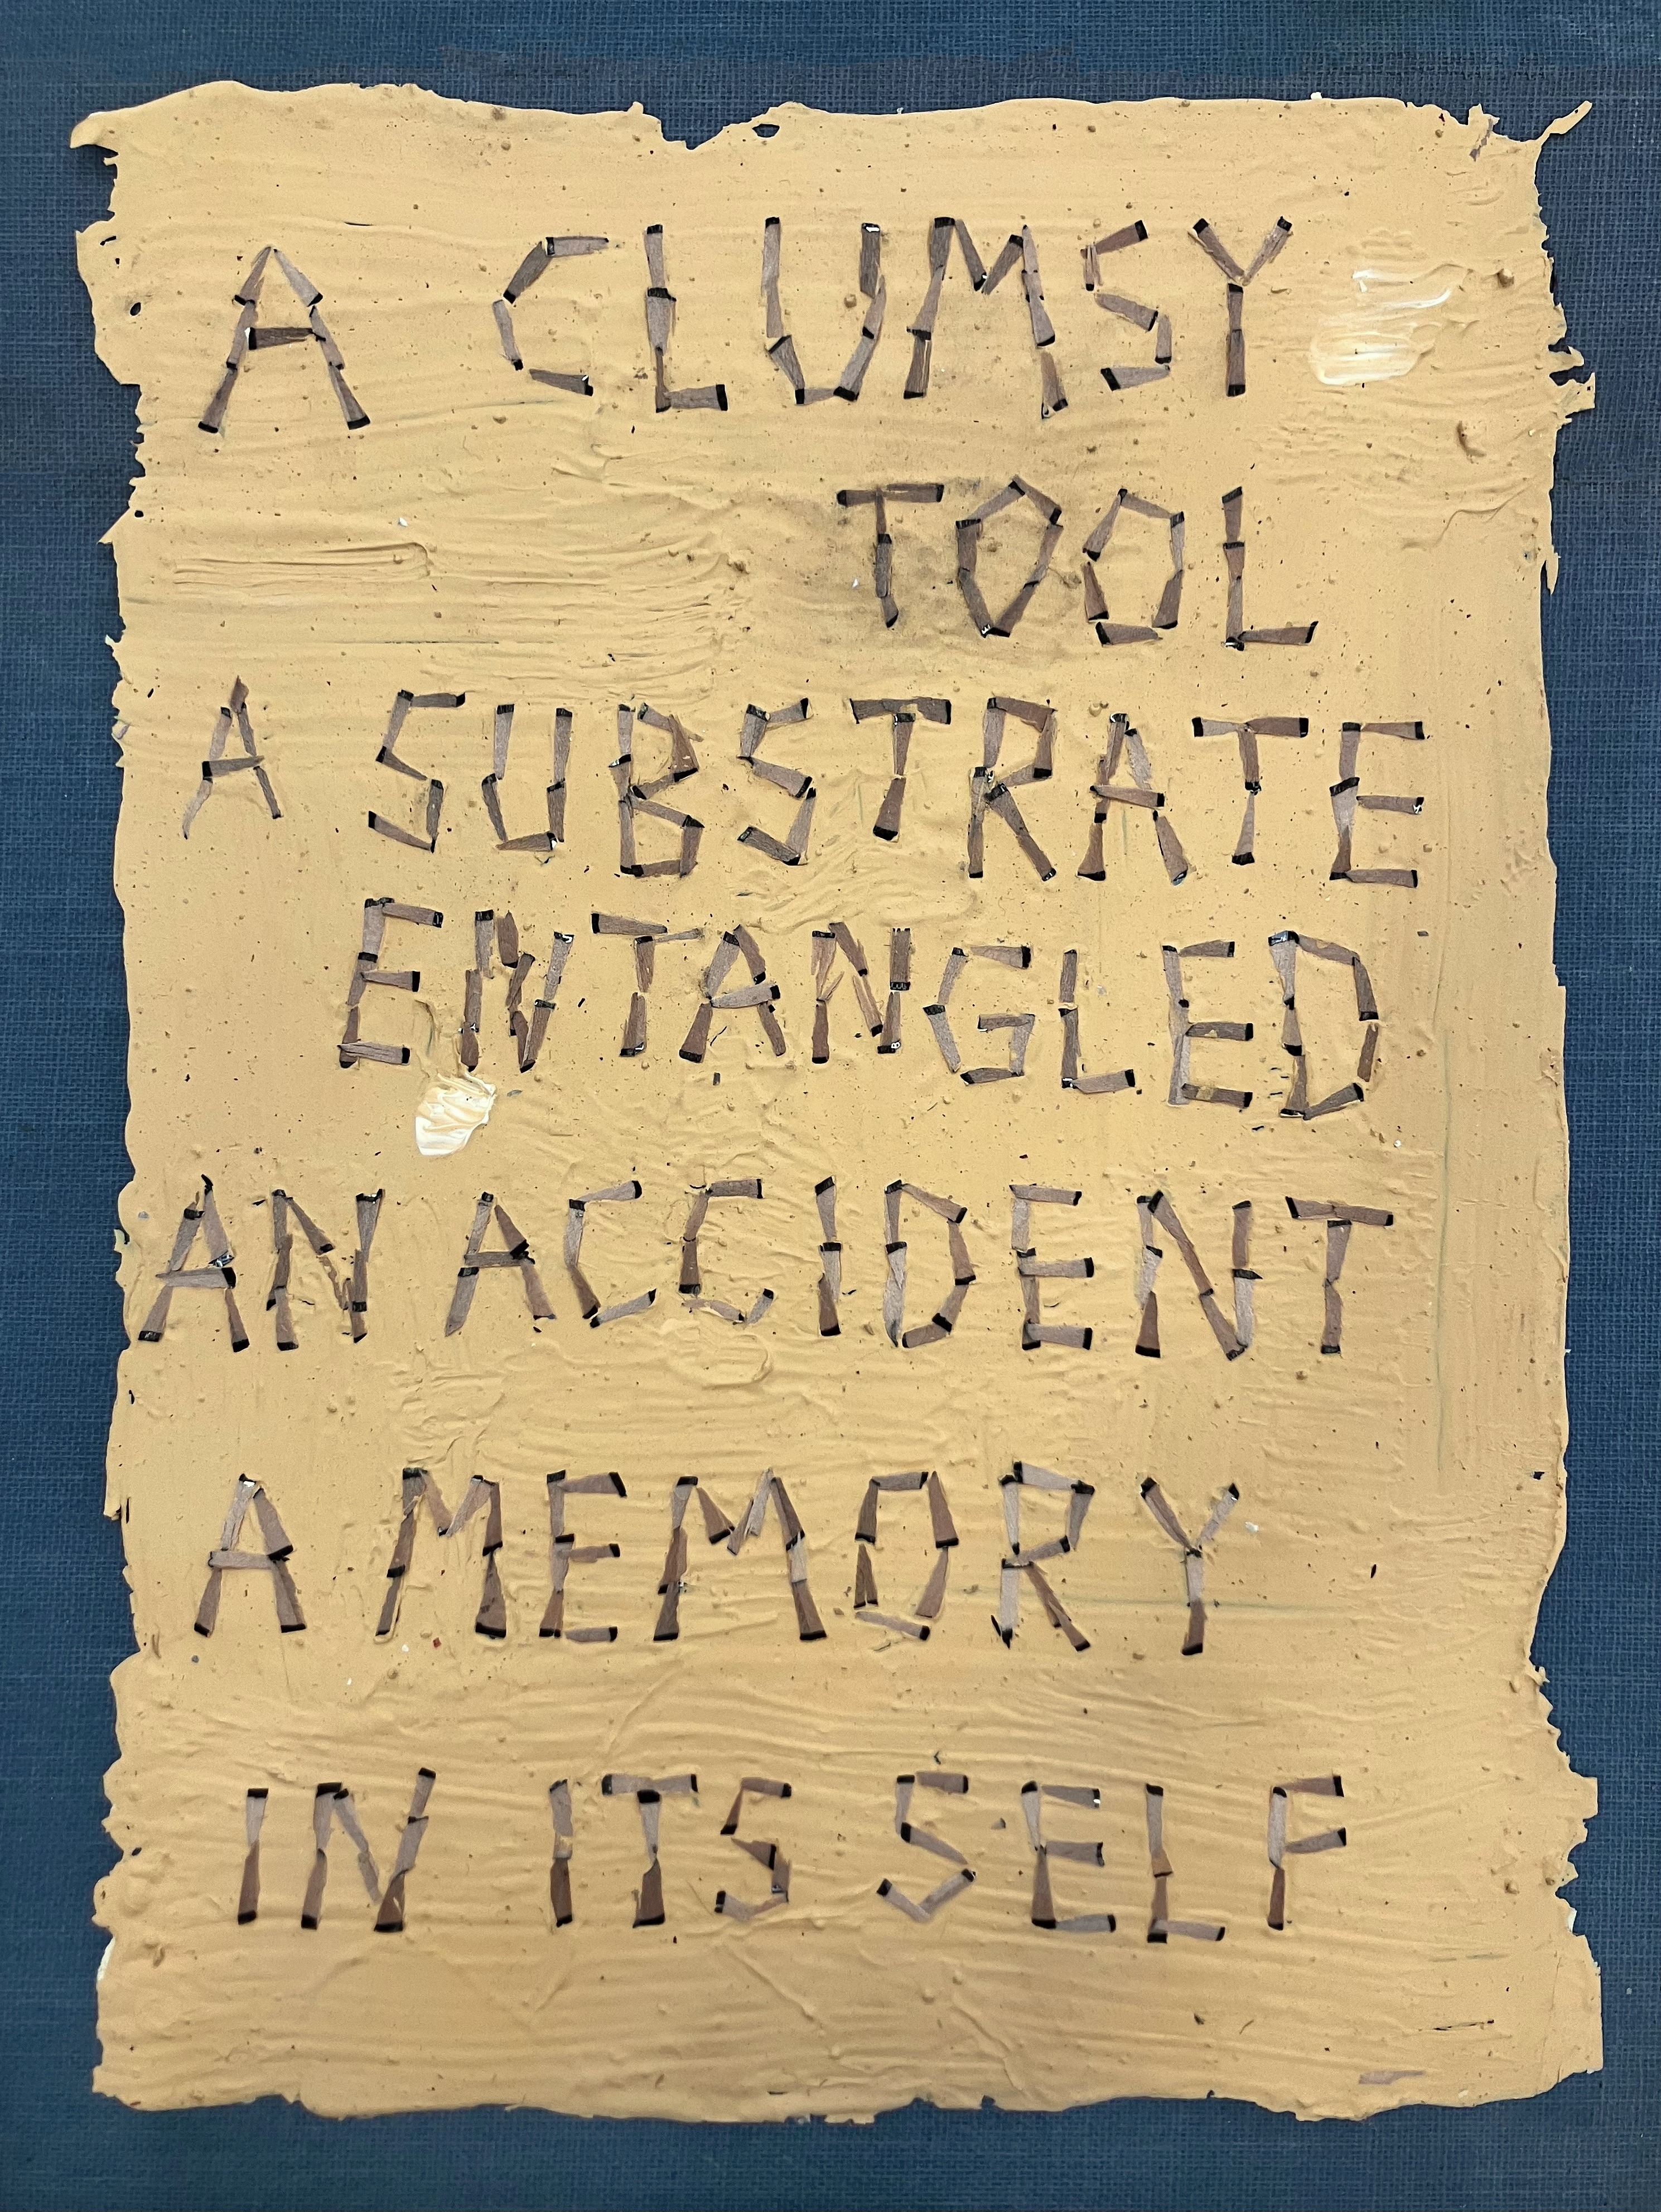 A CLUMSY
TOOL
A SUBSTRATE
ENTANGLED
AN ACCIDENT
A MEMORY
IN ITS SELF